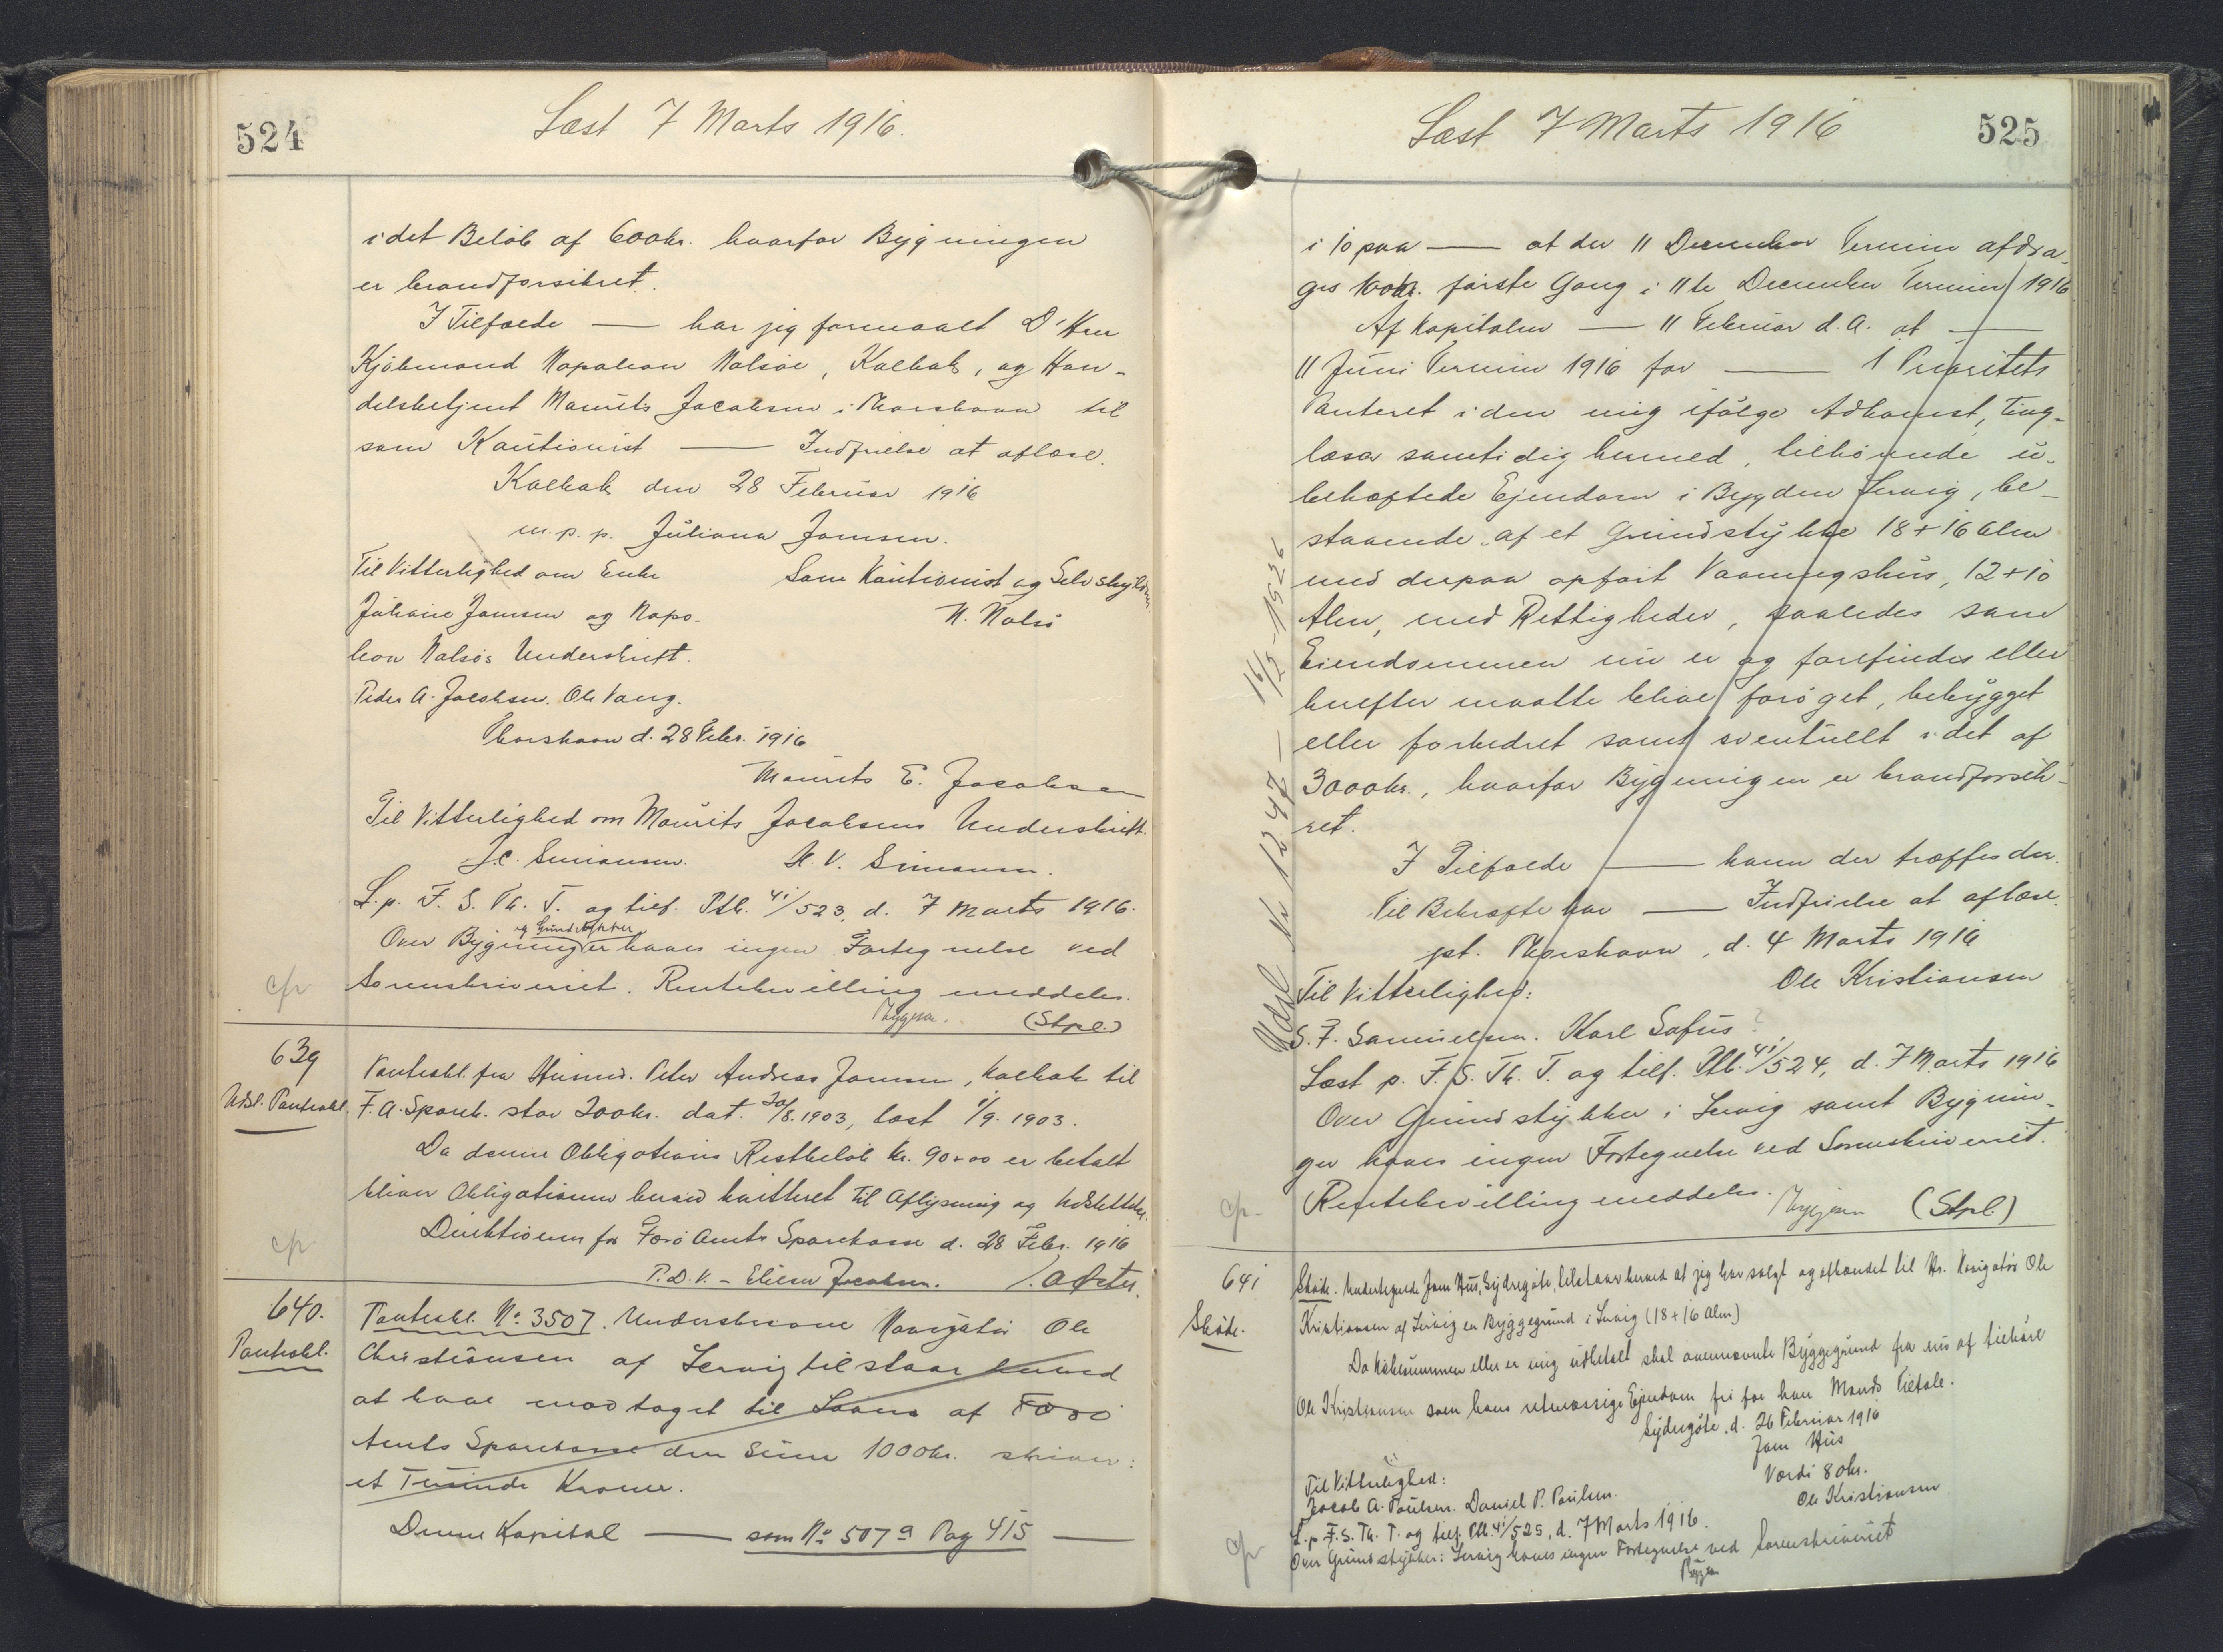 524
Læst 7 Marts 1916.
i det Beløb af 600 kr. hvorfor Bygningen
er brandforsikret.
I Tilfælde — har jeg formaaet D'Hrr
Kjøbmand Napoleon Nolsøe, Kalbak, og Han-
delsbetjent Maurits Jacobsen i Thorshavn til
som Kautionist — Indfrielse at aflæse.
Kalbak den 28 Februar 1916
m. p. p. Juliana Joensen.
Til Vitterlighed om Enke
Juliane Joensen og Napo-
leon Nolsøs Underskrift.
Peder A. Jacobsen. Ole Vang.
Som Kautionist og Selvskyldner
N. Nolsø
Thorshavn d. 28 Febr. 1916
Maurits E. Jacobsen
Til Vitterlighed om Maurits Jacobsens Underskrift.
J.C. Simonsen. H. V. Simonsen.
L. p. F. S. Th. T. og tilf. Ptb. 41/523. d. 7 Marts 1916.
og Grundstykker
Over Bygninger haves ingen Fortegnelse ved
Sorenskriveriet. Rentebevilling meddeles.
cfr
(Stpl.)
639
Udsl. Panteobl.
Panteobl. fra Husmd. Peter Andreas Joensen, Kalbak til
F. A. Spark. stor 200 kr. dat. 20/8. 1903, læst 1/9. 1903.
Da denne Obligations Restbeløb kr. 90,00 er betalt
bliver Obligationen herved kvitteret til Aflysning og Udslettelse.
Direktionen for Færø Amts Sparekasse d. 28 Febr. 1916
cfr
P. D. V. - Eliesar Jacobsen.
640.
Panteobl.
Panteobl. No. 3507. Underskrevne Navigatør Ole
Christiansen af Lervig tilstaar herved
at have modtaget til Laans af Færø
Amts Sparekasse den Sum 1000 kr. skriver:
et Tusinde Kroner.
Denne Kapital — som No. 507a Pag 415 —
Læst 7 Marts 1916
525
i 10 paa — at der 11 December Termin afdra-
ges 100 kr. første Gang i 11te December Termin 1916
Af Kapitalen — 11 Februar d. A. at —
11 Juni Termin 1916 for — 1 Prioritets
Panteret i den mig ifølge Adkomst, ting-
læses samtidig hermed, tilhørende u-
behæftede Ejendom i Bygden Lervig, be-
staaende af et Grundstykke 18 + 16 Alen
med derpaa opført Vaaningshus, 12 + 10
Alen, med Rettigheder, saaledes som
Eiendommen nu er og forefindes eller
herefter maatte blive forøget, bebygget
eller forbedret samt eventuelt i det af
3000 kr., hvorfor Bygningen er brandforsik-
ret.
I Tilfælde — kann der træffes der.
Til Bekræfte har — Indfrielse at aflæse.
pt. Thorshavn, d. 4 Marts 1916
Til Vitterlighed:
Ole Kristiansen
S. F. Samuelsen. Karl Sofus?
Læst p. F. S. Th. T. og tilf. Ptb. 41/524, d. 7 Marts 1916
Over Grundstykker i Lervig samt Bygnin-
ger haves ingen Fortegnelse ved Sorenskriveriet.
cfr
Rentebevilling meddeles. (Stpl.)
Udsl. Nr 1247 — 16/12-1926
641
Skøde.
Skøde. Undertegnede Joen Hus, Sydregøte, tilstaar herved at jeg har solgt og afhændet til Hr. Navigatør Ole
Kristiansen af Lervig en Byggegrund i Lervig (18 + 16 Alen)
Da Købesummen eller er mig udbetalt skal ovennævnte Byggegrund fra nu af tilhøre
Ole Kristiansen som hans retmæssige Ejendom fri for hver Mands Tiltale.
Sydregøte. d. 26 Februar 1916
Joen Hus
Til Vitterlighed:
Værdi 80 kr.
Jacob A. Poulsen. Daniel P. Poulsen.
Ole Kristiansen
L. p. F. S. Th. T. og tilf. Ptb. 41/525, d. 7 Marts 1916.
cfr
Over Grundstykker i Lervig haves ingen Fortegnelse ved Sorenskriveriet